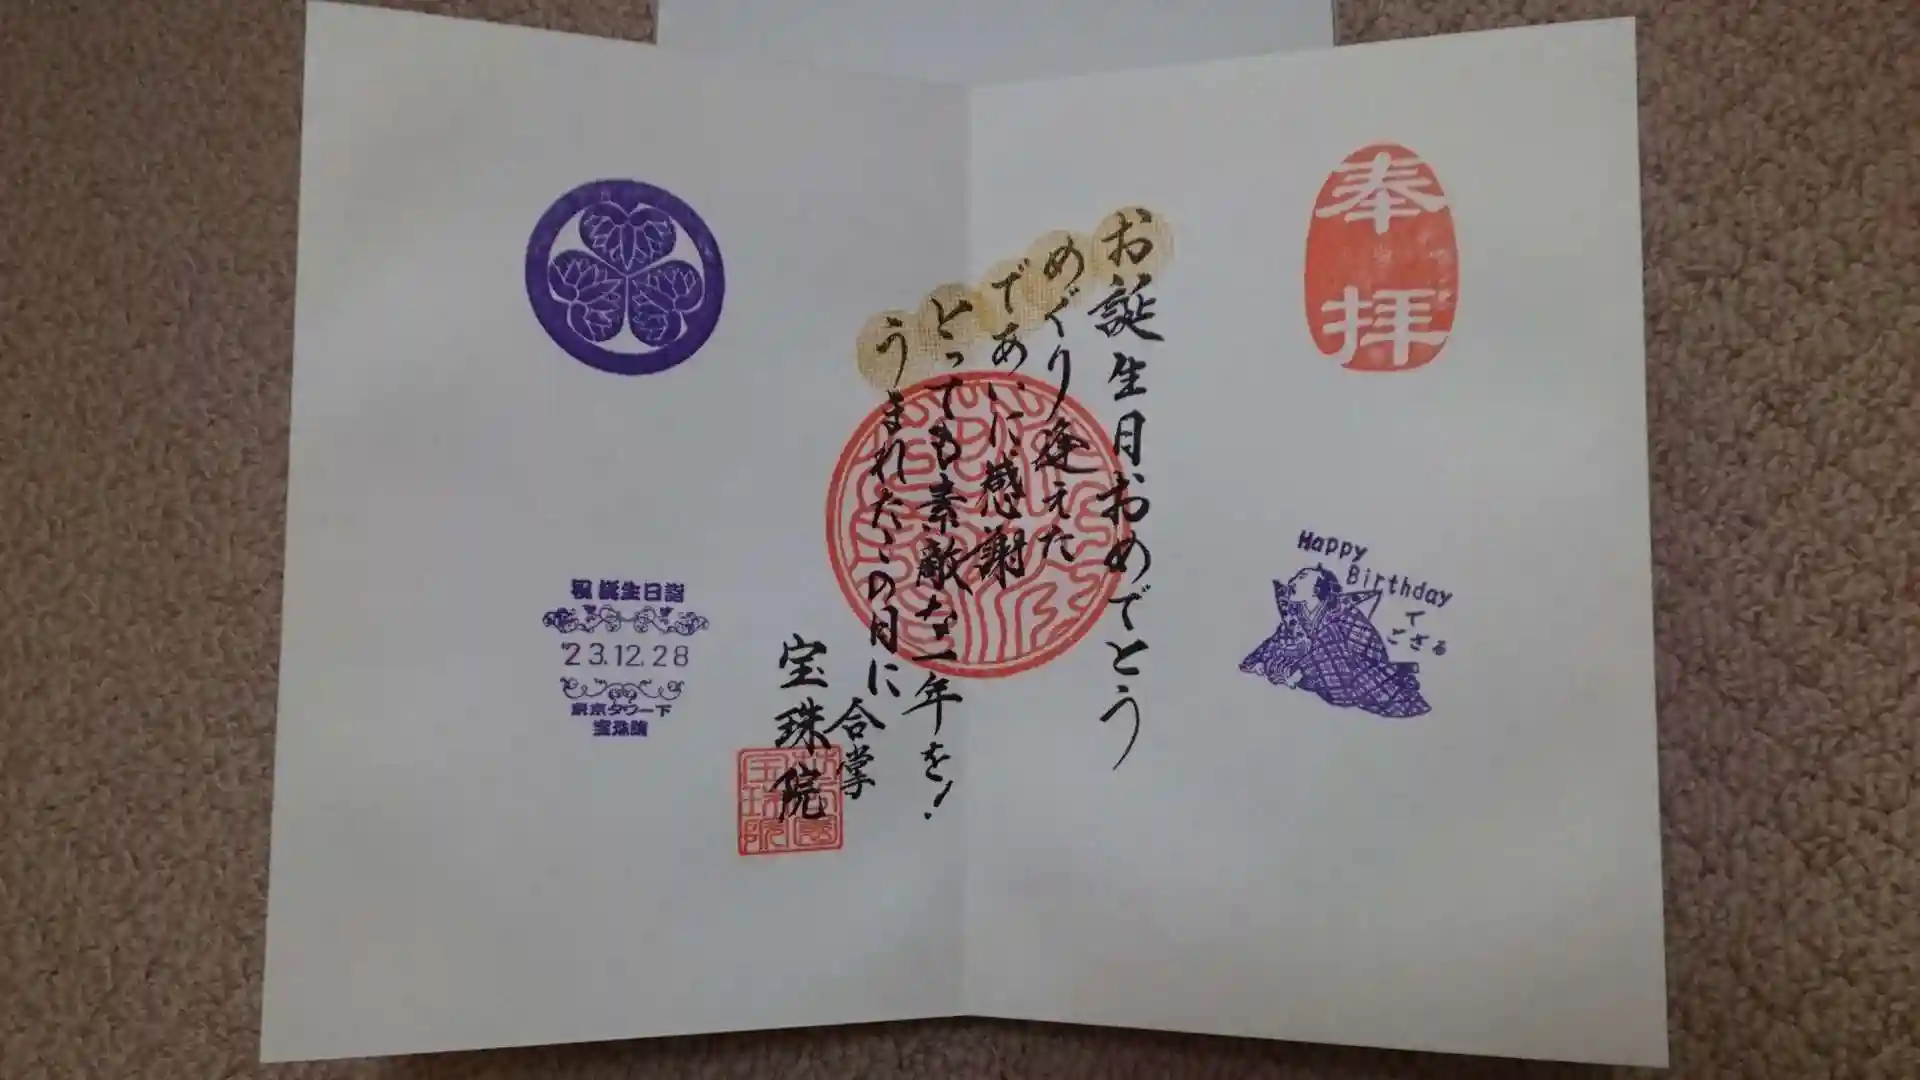 奉拝
Happy
Birthday
で
ござる
お誕生日おめでとう
めぐり逢えた
であいに感謝
とっても素敵な一年を!
うまれたこの日に
合掌
宝珠院
祝 誕生日詣
'23.12.28
東京タワー下
宝珠院